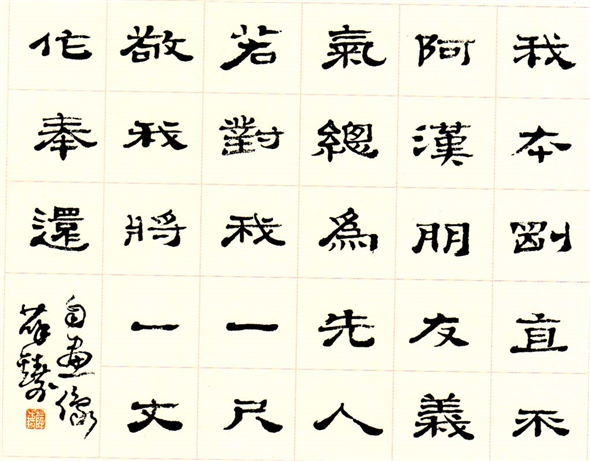 我本剛直不
阿漢朋友義
氣總為先人
若對我一尺
敬我將一丈
作奉還
自畫像
薛